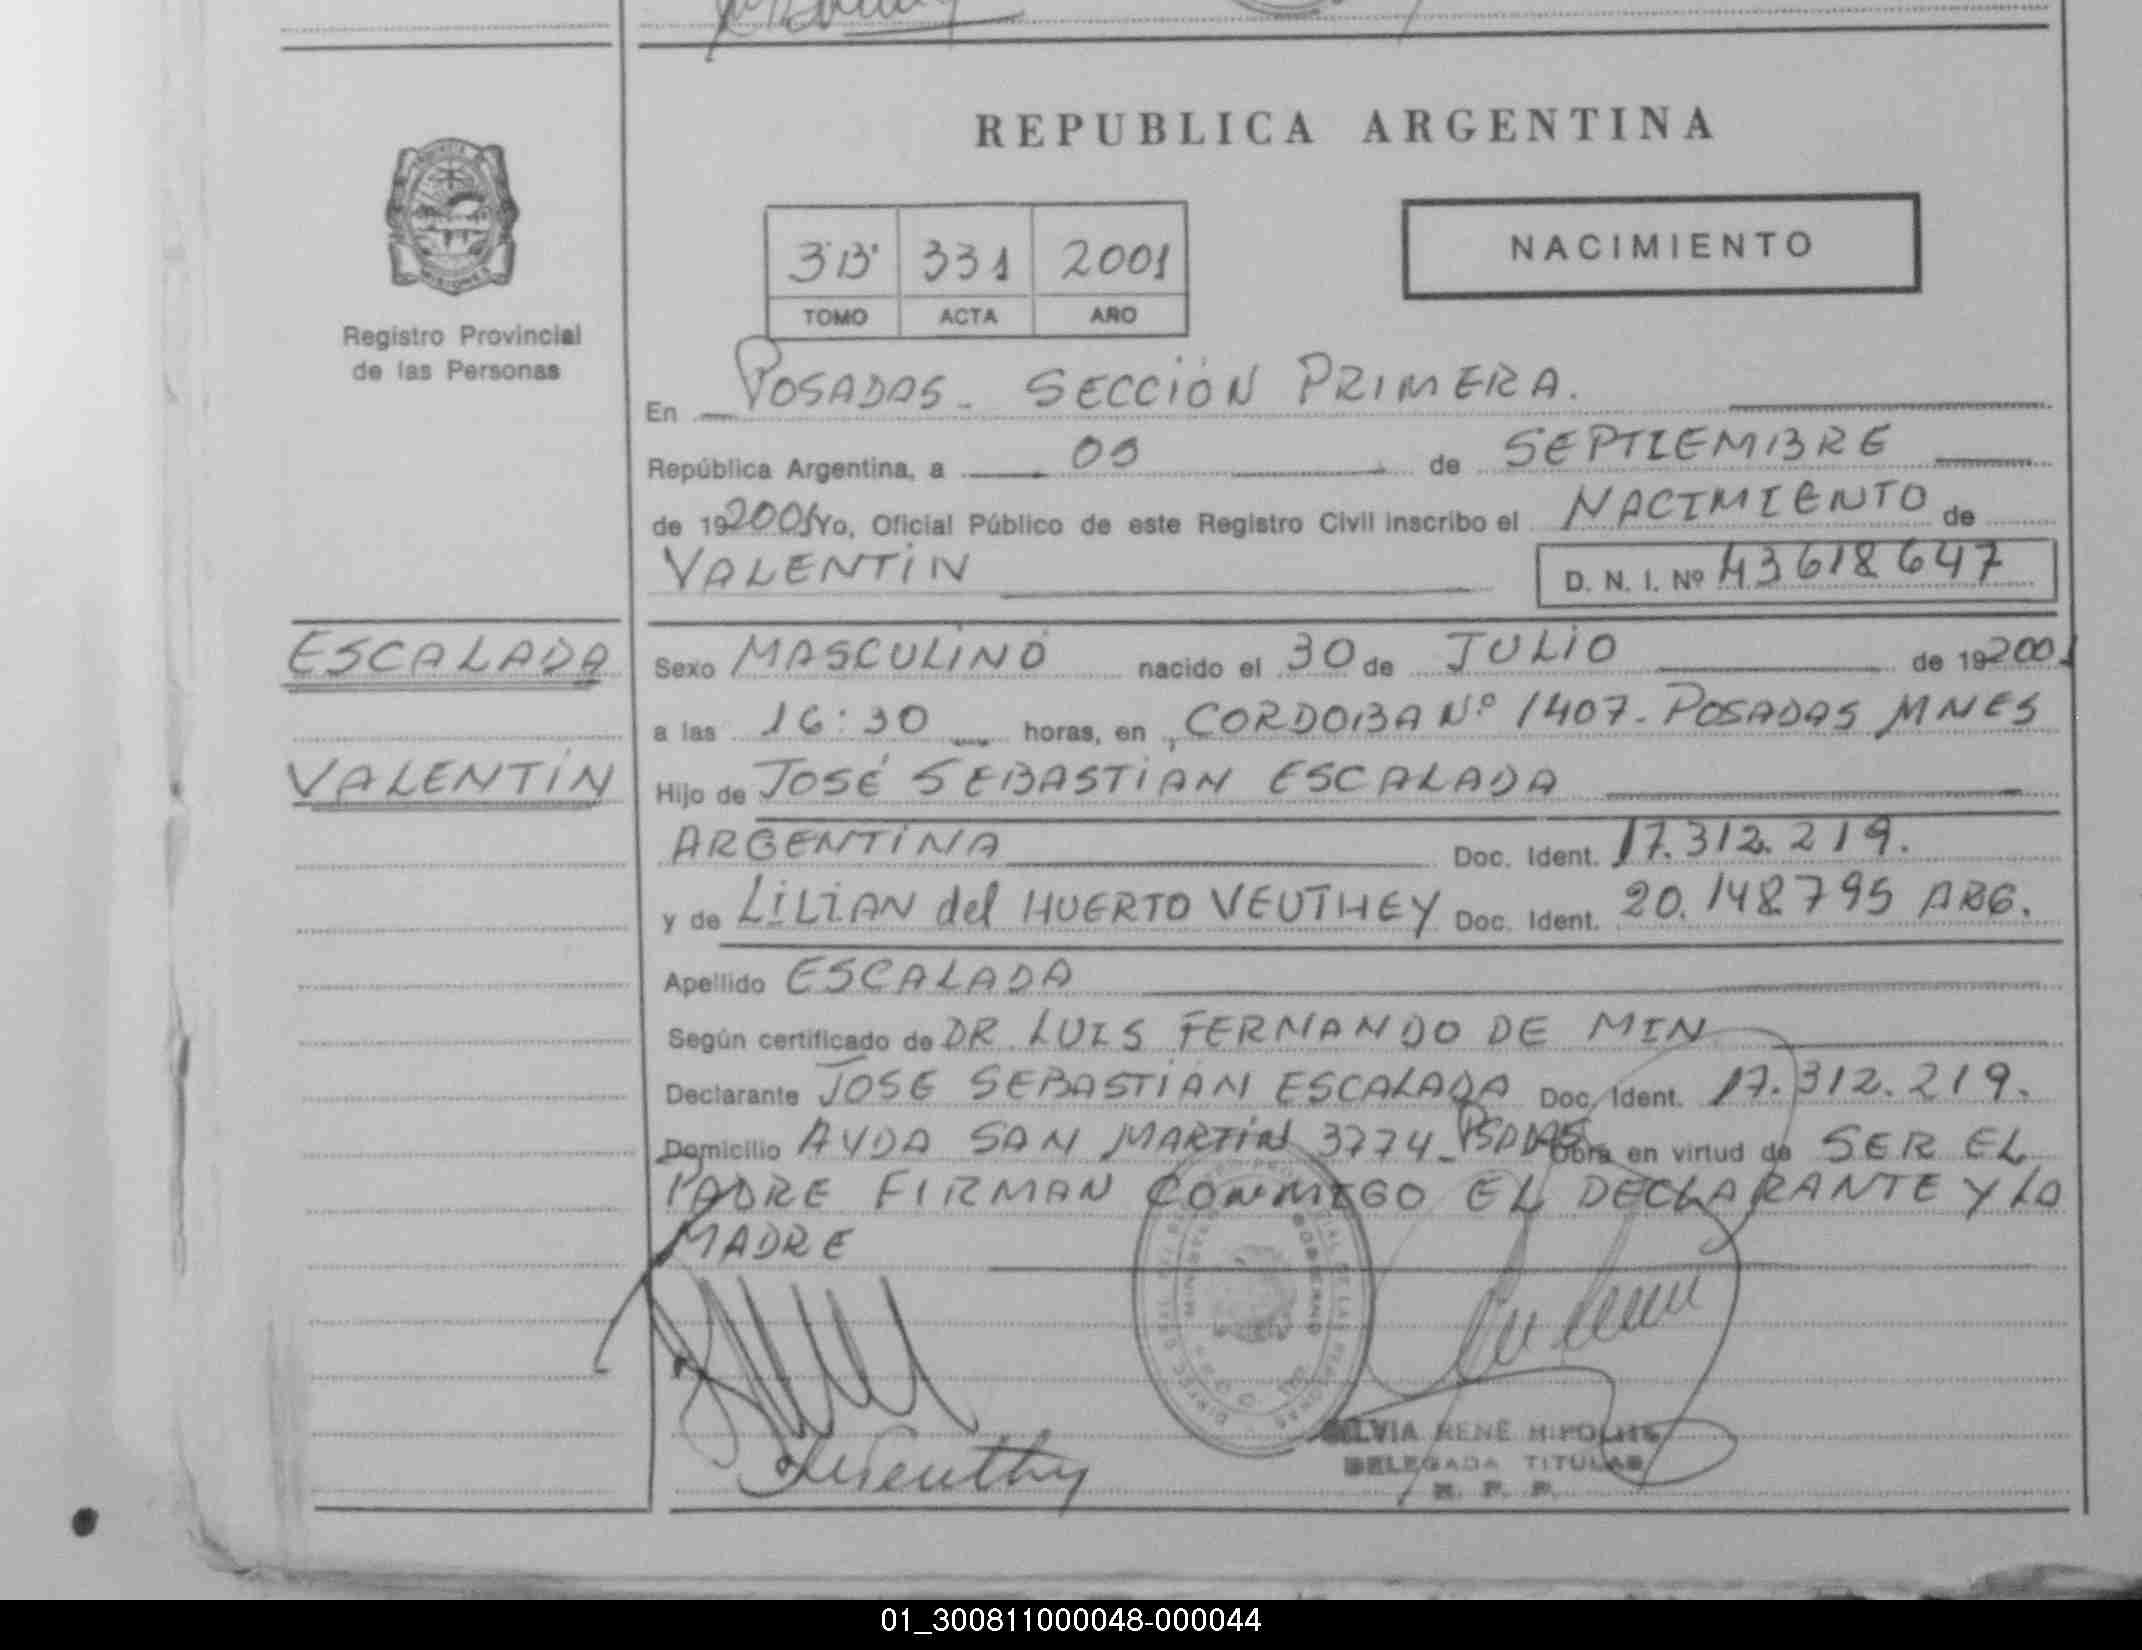 REPUBLICA ARGENTINA
Registro Provincial
de las Personas
3"B" 331 2001
TOMO ACTA AÑO
NACIMIENTO
En POSADAS - SECCIÓN PRIMERA.
República Argentina, a 09 de SEPTIEMBRE
de 19 2001 Yo, Oficial Público de este Registro Civil inscribo el NACIMIENTO de
VALENTÍN D. N. I. Nº 43618647
ESCALADA
VALENTÍN
Sexo MASCULINO nacido el 30 de JULIO de 19 2001
a las 16:30 horas, en CORDOBA Nº 1407 - POSADAS MNES
Hijo de JOSÉ SEBASTIAN ESCALADA
ARGENTINA Doc. Ident. 17.312.219.
y de LILIAN del HUERTO VEUTHEY Doc. Ident. 20.148795 ARG.
Apellido ESCALADA
Según certificado de DR. LUIS FERNANDO DE MIN
Declarante JOSE SEBASTIÁN ESCALADA Doc. Ident. 17.312.219.
Domicilio AVDA SAN MARTÍN 3774 - PSDAS Obra en virtud de SER EL
PADRE FIRMAN CONMIGO EL DECLARANTE Y LA
MADRE
SILVIA RENÉ HIPOLITE
DELEGADA TITULAR
R. P. P.
01_300811000048-000044